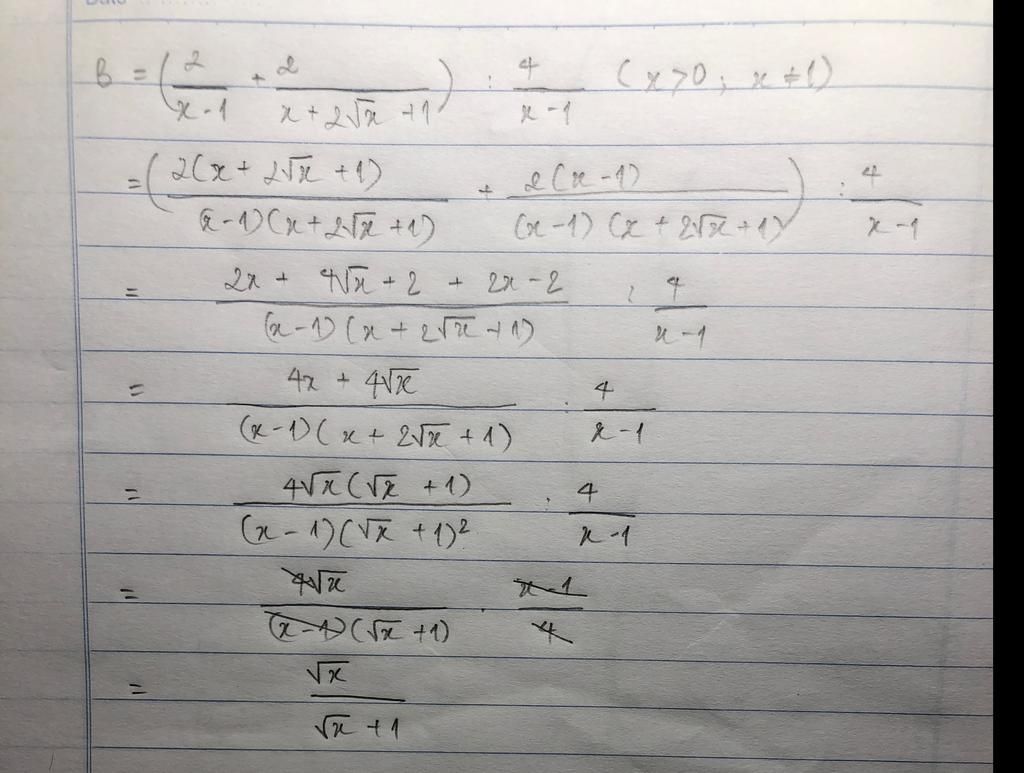 B = (2/(x-1) + 2/(x+2√x+1)) : 4/(x-1) (x>0; x≠1)
= (2(x+2√x+1)/((x-1)(x+2√x+1)) + 2(x-1)/((x-1)(x+2√x+1))) : 4/(x-1)
= (2x + 4√x + 2 + 2x - 2)/((x-1)(x+2√x+1)) : 4/(x-1)
= (4x + 4√x)/((x-1)(x+2√x+1)) : 4/(x-1)
= 4√x(√x+1)/((x-1)(√x+1)²) : 4/(x-1)
= 4√x/((x-1)(√x+1)) . (x-1)/4
= √x/(√x+1)